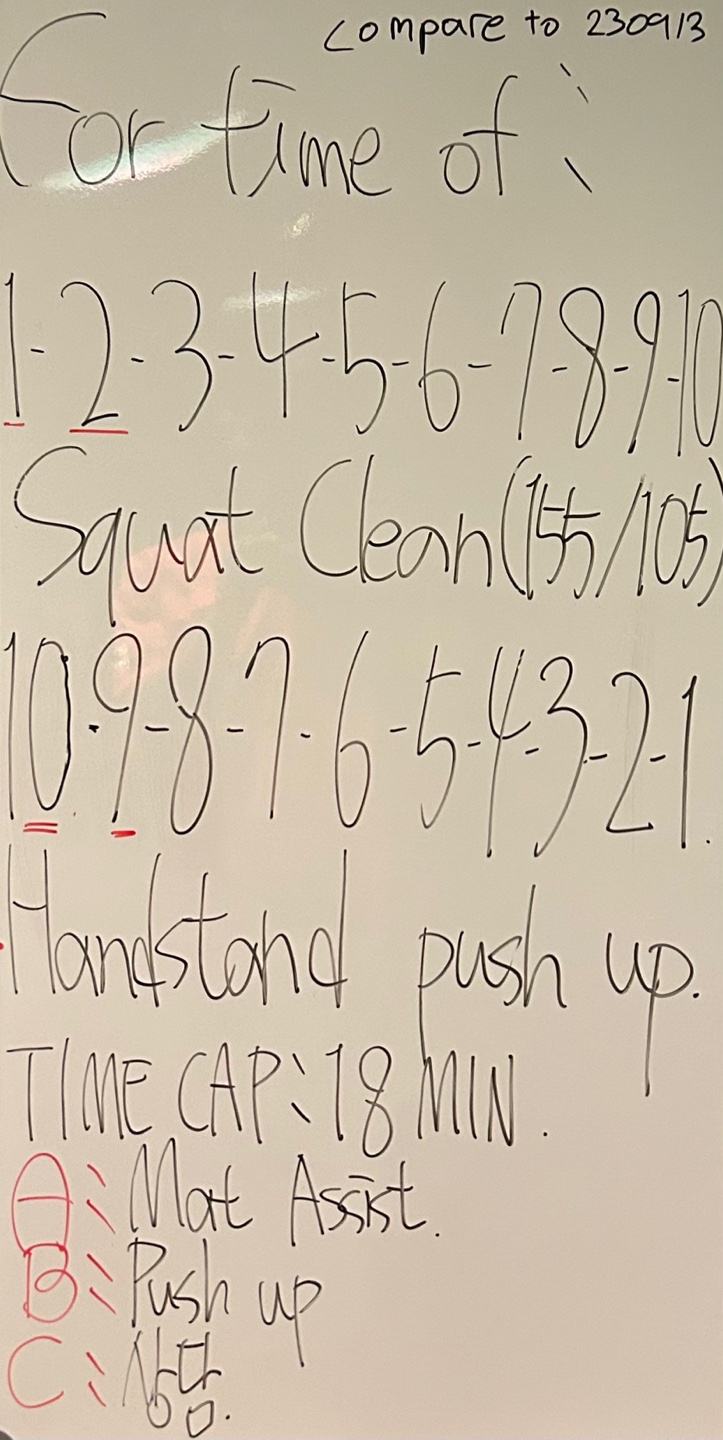 compare to 230913
For time of :
1-2-3-4-5-6-7-8-9-10
Squat Clean (155/105)
10-9-8-7-6-5-4-3-2-1.
Handstand push up.
TIME CAP: 18 MIN.
A: Mat Assist.
B: Push up
C: 상담.